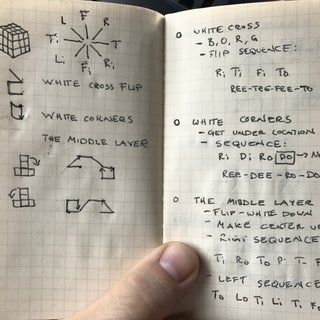 L F R
Ti T
Li Fi Ri
WHITE CROSS FLIP
WHITE CORNERS
THE MIDDLE LAYER
O WHITE CROSS
- B, O, R, G
- FLIP SEQUENCE:
Ri Ti Fi To
REE-TEE-FEE-TO
O WHITE CORNERS
- GET UNDER LOCATION
- SEQUENCE:
Ri Di Ro DO → No
REE-DEE-RO-DO
O THE MIDDLE LAYER
- FLIP-WHITE DOWN
- MAKE CENTER
- RIGHT SEQUENCE
Ti Ro To
- LEFT SEQUENCE
To Lo Ti Li Ti